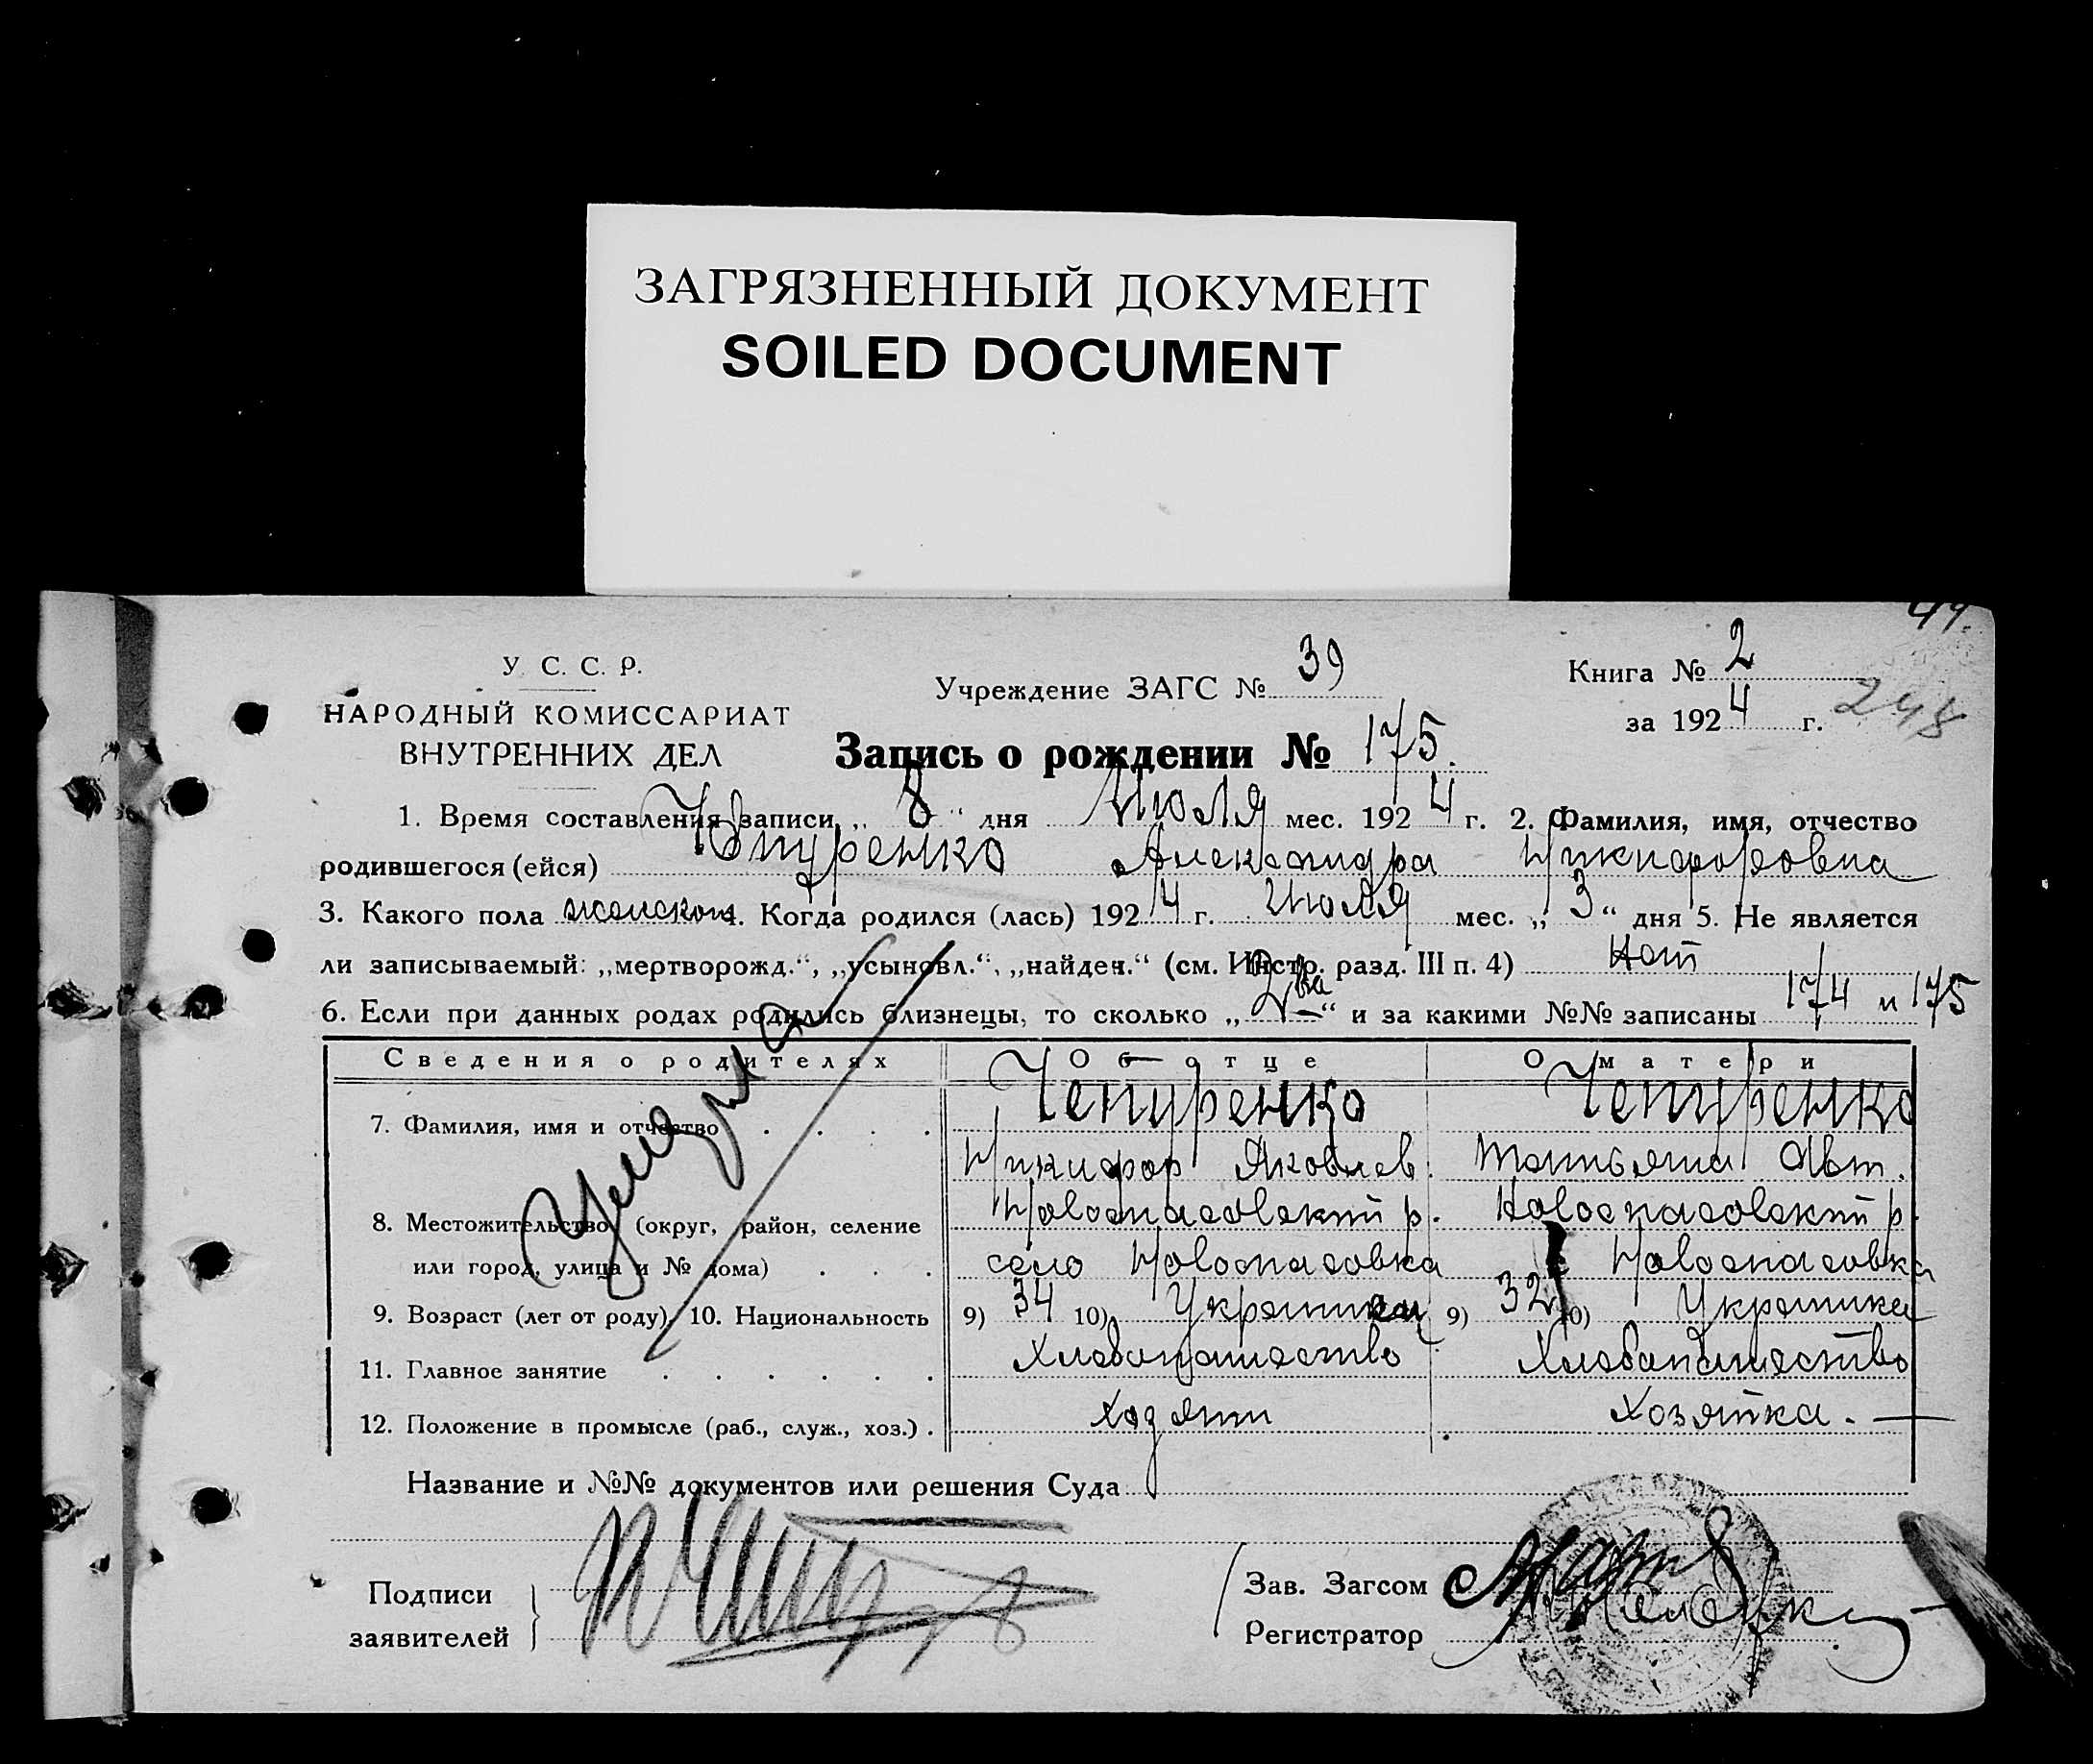 ЗАГРЯЗНЕННЫЙ ДОКУМЕНТ
SOILED DOCUMENT
49.
У. С. С. Р.
НАРОДНЫЙ КОМИССАРИАТ
ВНУТРЕННИХ ДЕЛ
Учреждение ЗАГС № 39
Книга № 2
за 1924 г.
248
Запись о рождении № 175.
1. Время составления записи „ 8 “ дня Июля мес. 1924 г. 2. Фамилия, имя, отчество
родившегося (ейся) Чепуренко Александра Никифоровна
3. Какого пола женском 4. Когда родился (лась) 1924 г. Июля мес. „ 3 “ дня 5. Не является
ли записываемый: „мертворожд.“, „усыновл.“, „найден.“ (см. Инстр. разд. III п. 4) Нет
6. Если при данных родах родились близнецы, то сколько „ Два “ и за какими №№ записаны 174 и 175
Сведения о родителях Об отце О матери
7. Фамилия, имя и отчество . . . . Чепуренко Чепуренко
Никифор Яковлев. Татьяна Авт.
8. Местожительство (округ, район, селение Новоспасовский р. Новоспасовский р.
или город, улица и № дома) . . . село Новоспасовка с Новоспасовка
9. Возраст (лет от роду). 10. Национальность 9) 34 10) Украинец 9) 32 10) Украинка
11. Главное занятие . . . . . . Хлебопашество Хлебопашество
12. Положение в промысле (раб., служ., хоз.) . Хозяин Хозяйка.
Умерла
Название и №№ документов или решения Суда
Подписи
заявителей
Зав. Загсом
Регистратор